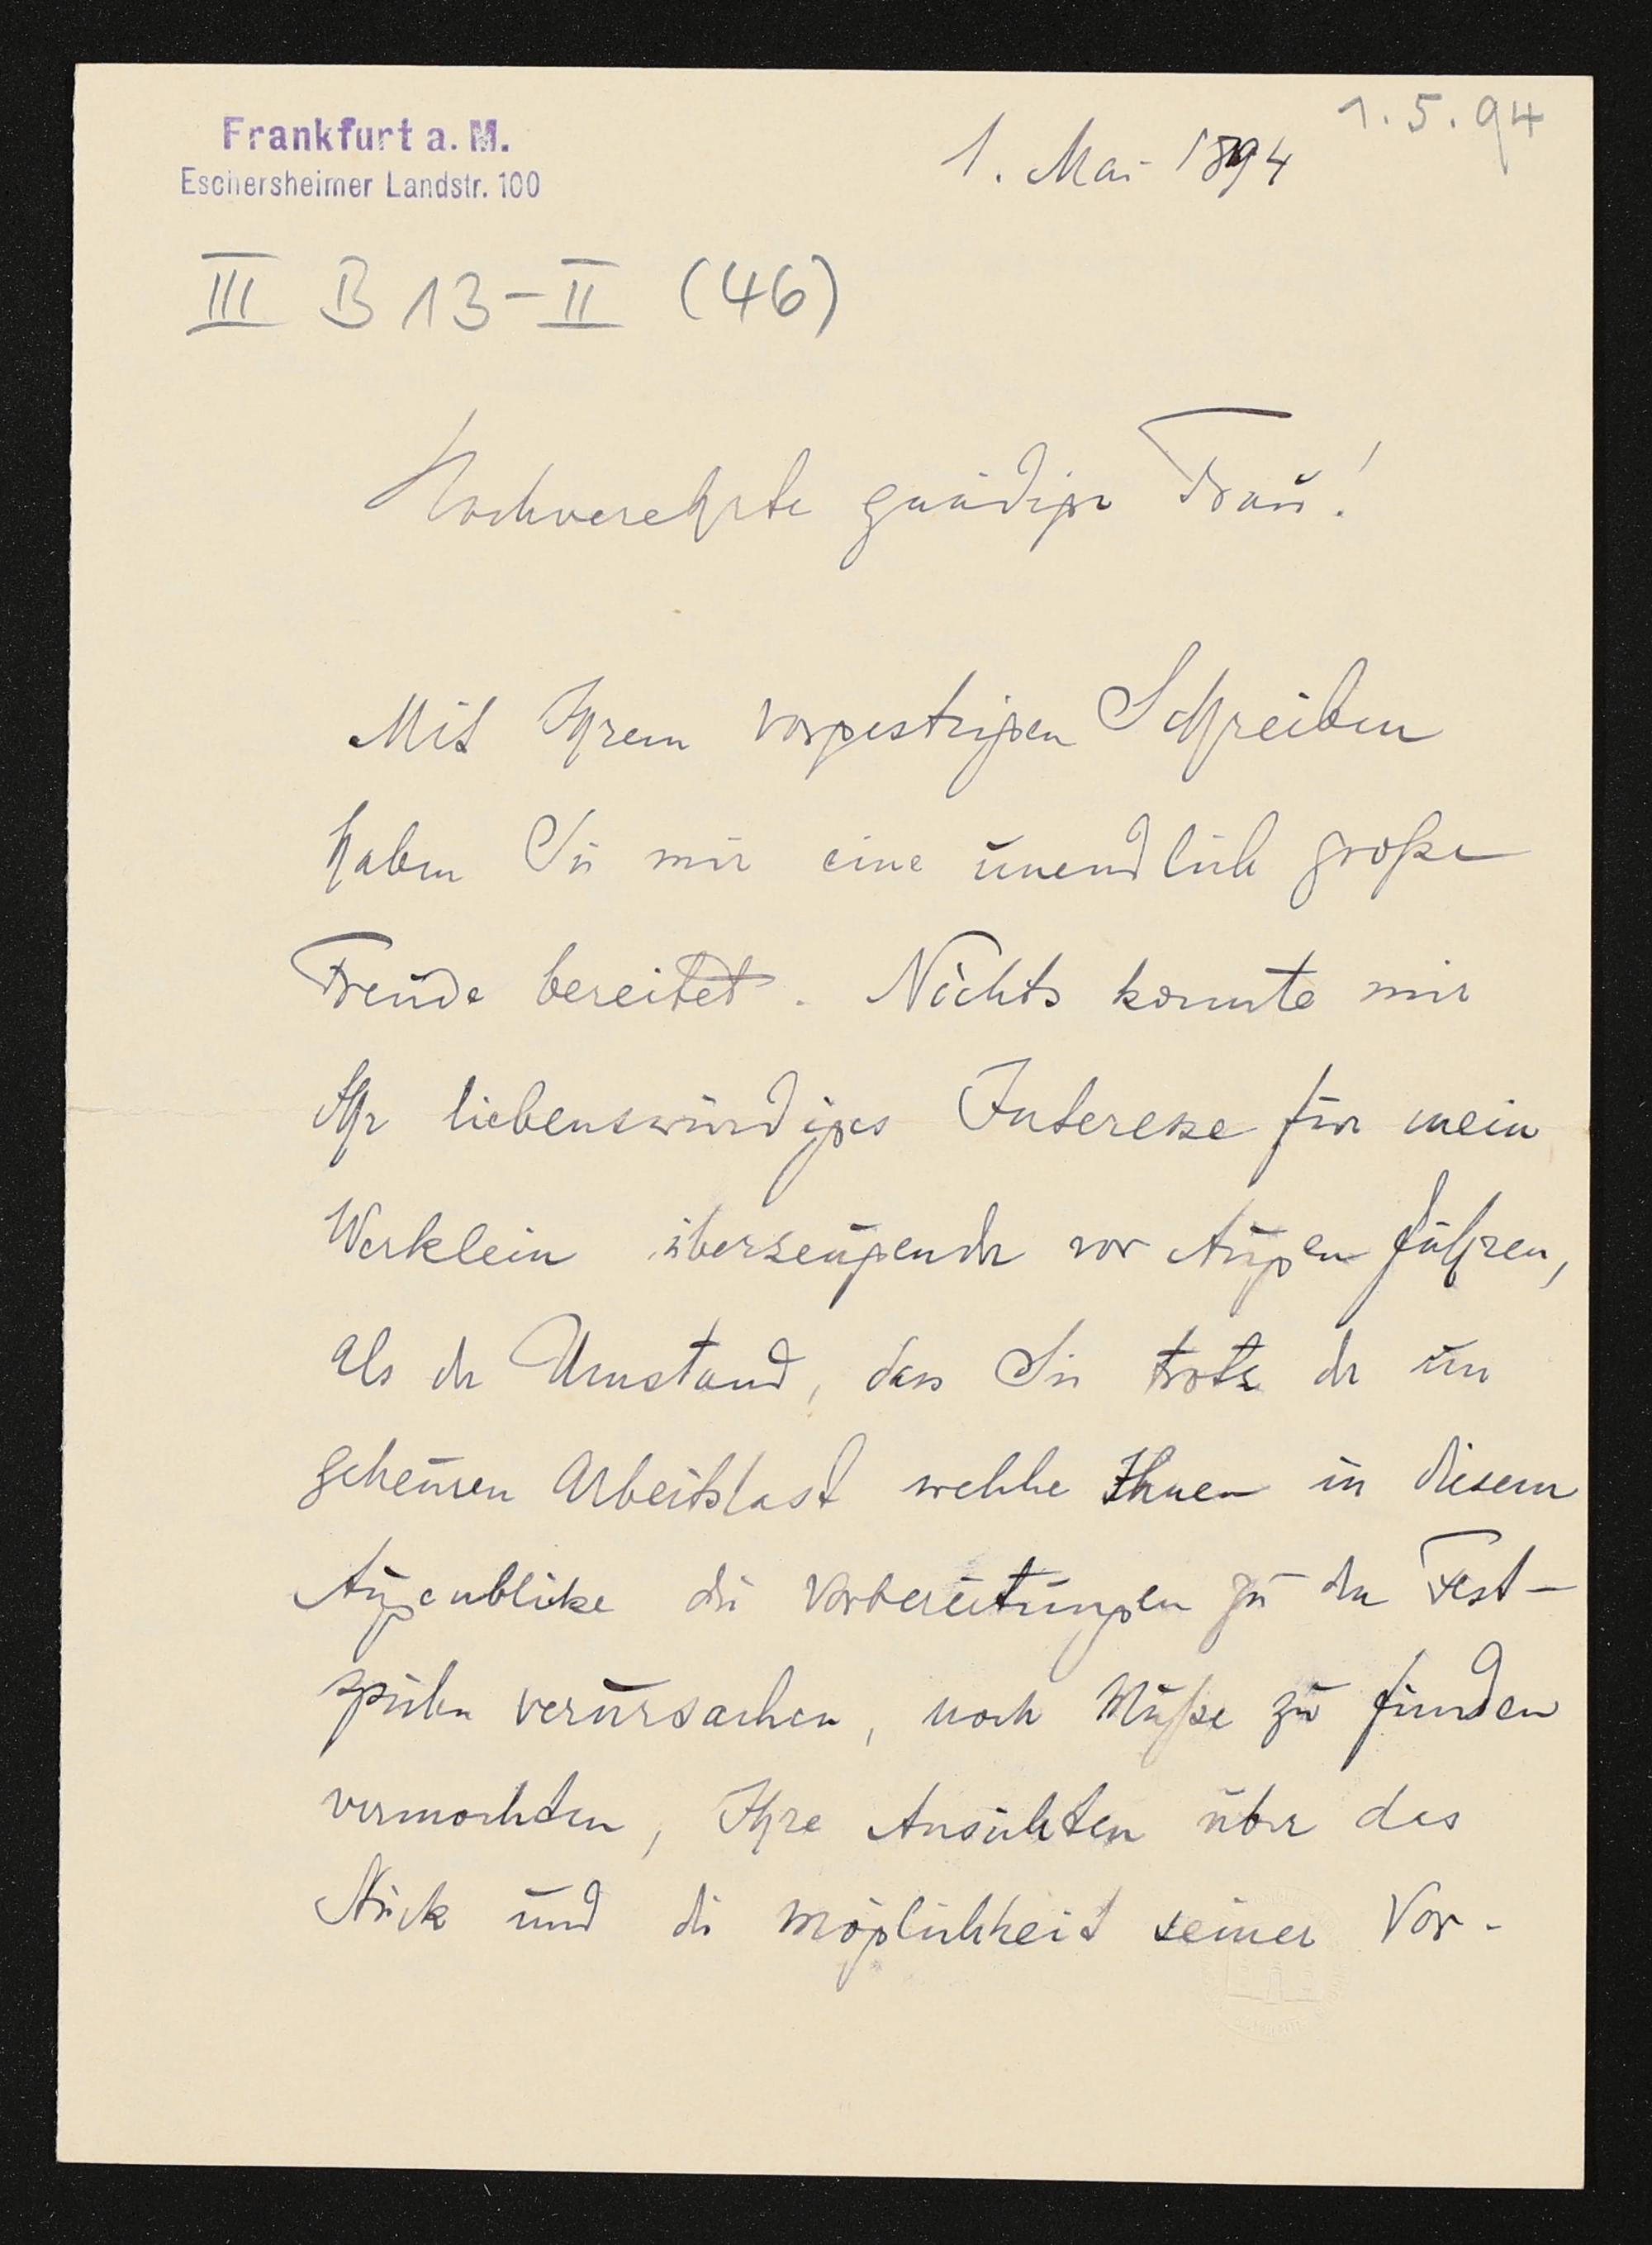 Frankfurt a. M.
Eschersheimer Landstr. 100
1. Mai 1894
1. 5. 94
III B 13-II (46)
Hochverehrte gnädige Frau!
Mit Ihrem vorgestrigen Schreiben
haben Sie mir eine unendlich große
Freude bereitet. Nichts konnte mir
Ihr liebenswürdiges Interesse für mein
Werklein überzeugender vor Augen führen,
als der Umstand, dass Sie trotz der un
geheuren Arbeitslast welche Ihnen in diesem
Augenblicke die Vorbereitungen zu den Fest-
spielen verursachen, noch Muße zu finden
vermochten, Ihre Ansichten über das
Stück und die Möglichkeit seiner Vor-